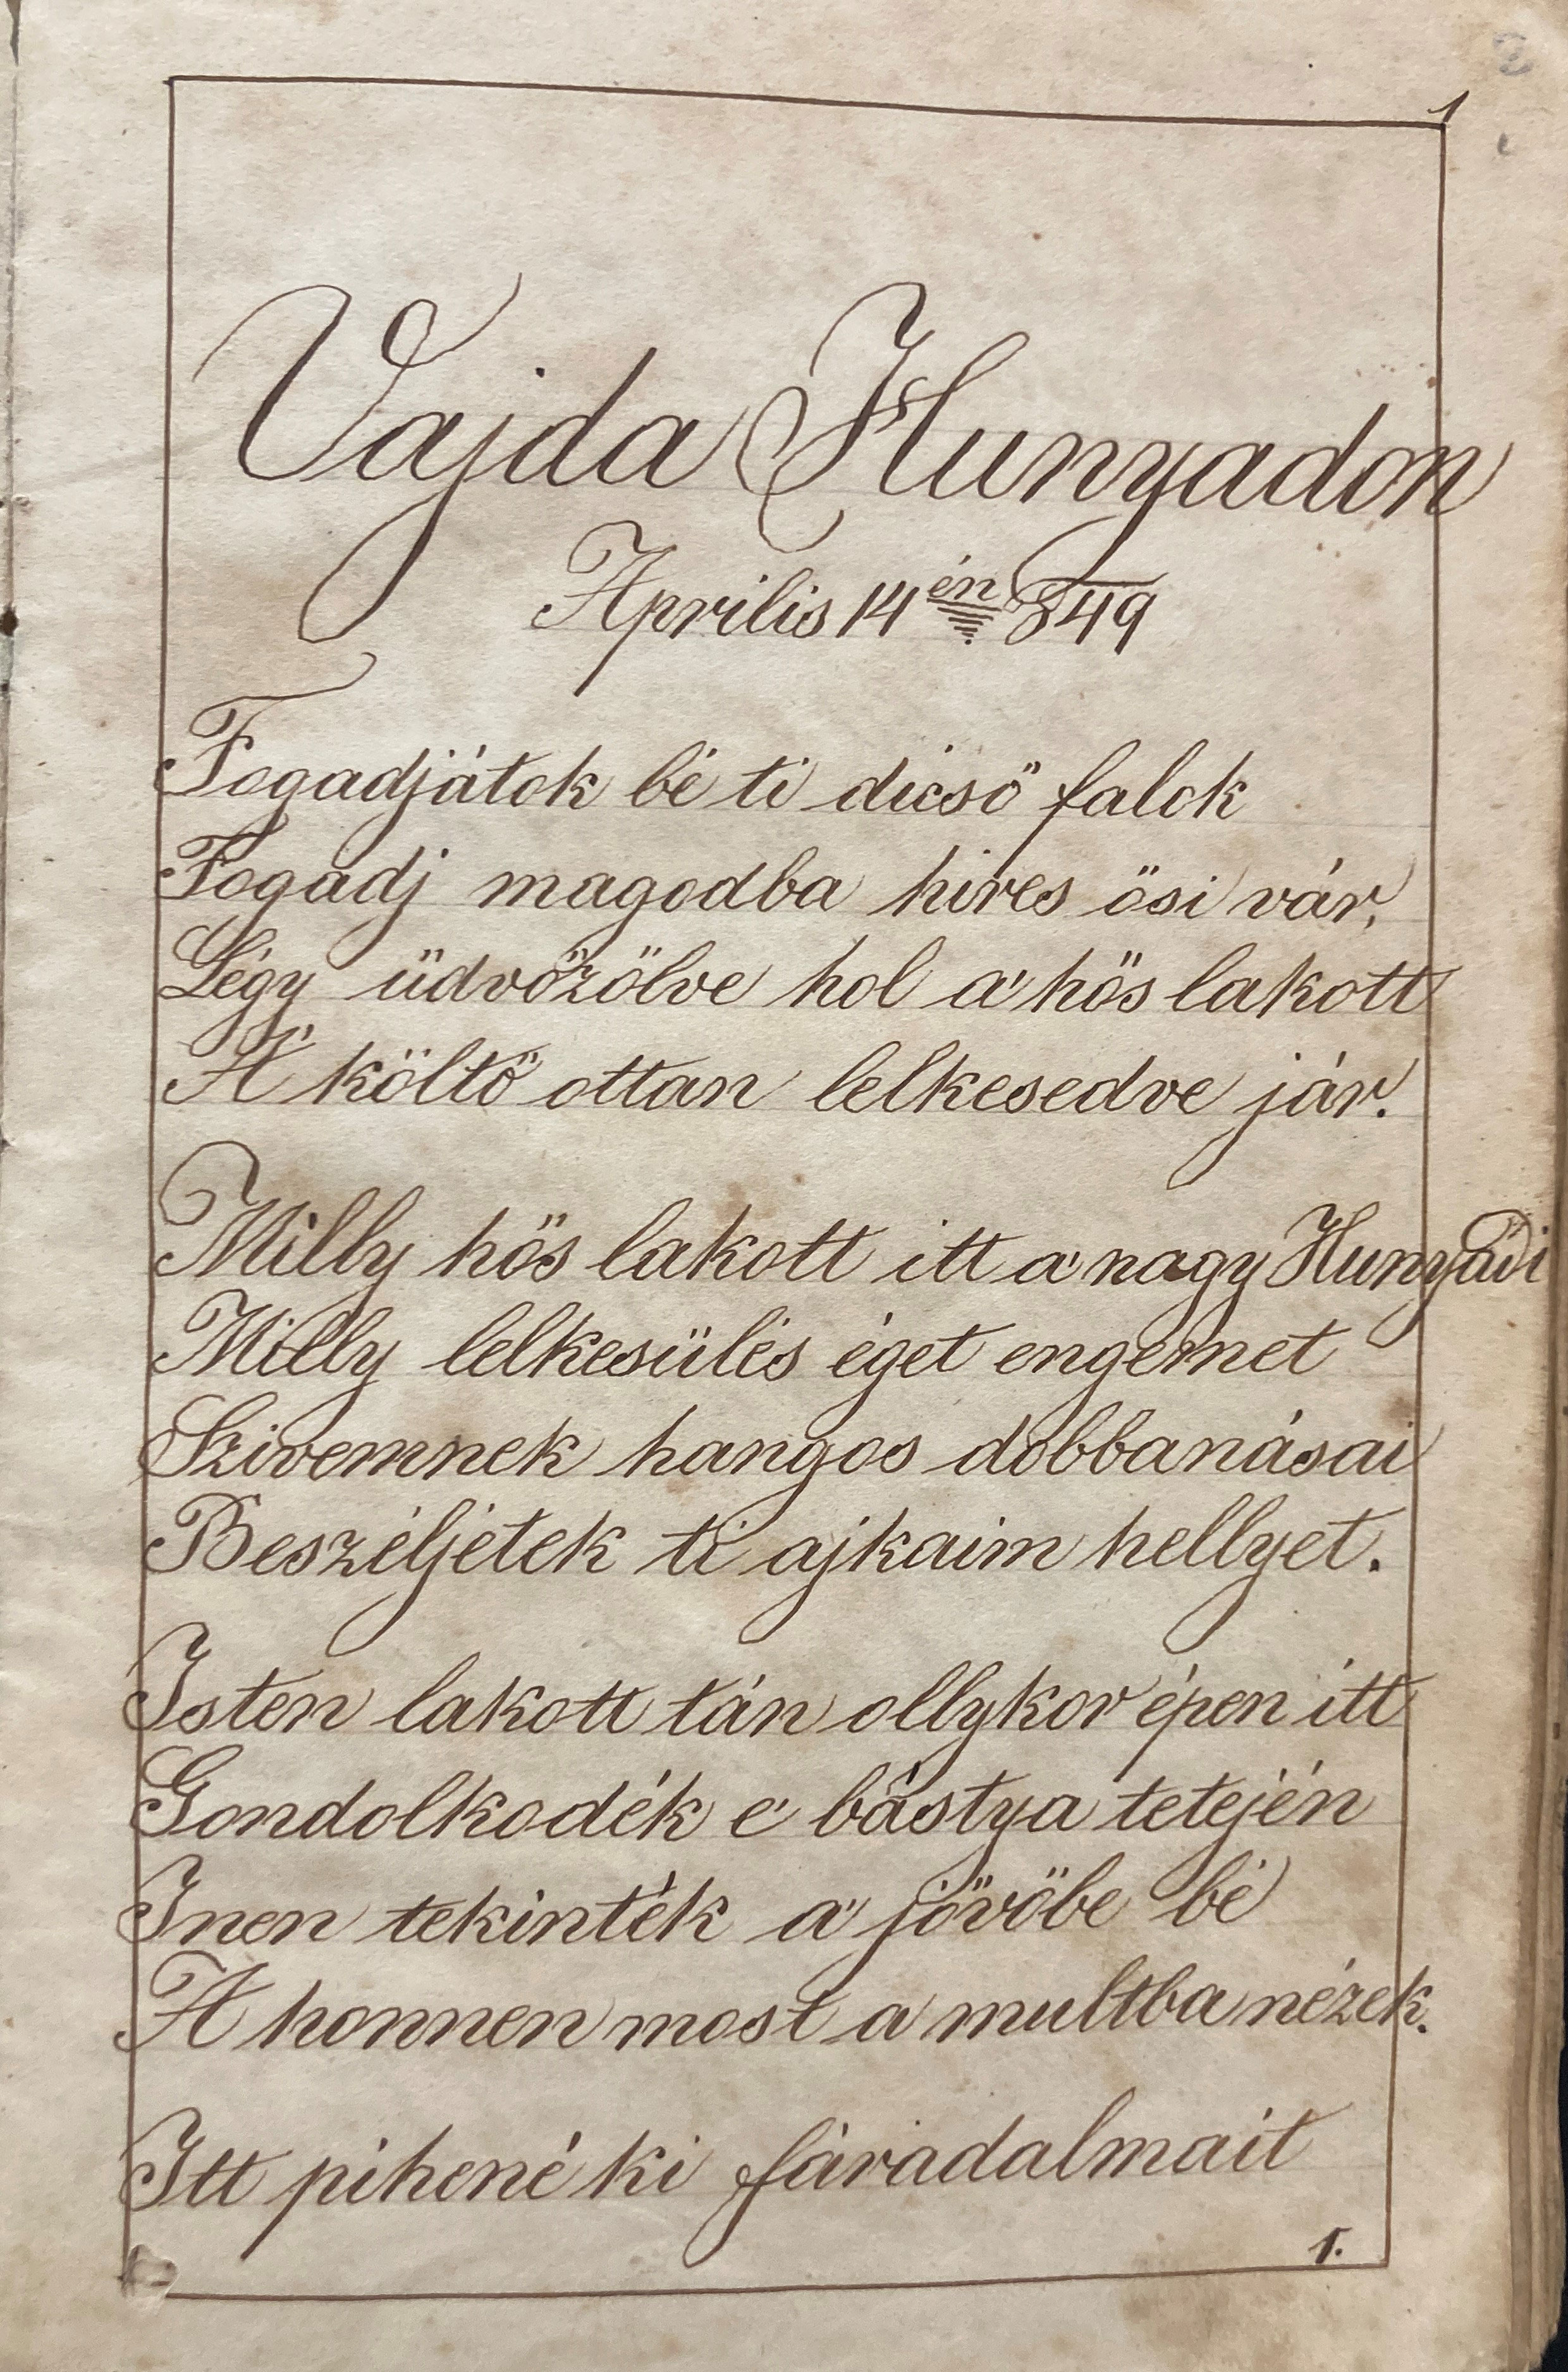 1
2
Vajda Hunyadon
Aprilis 14én 849
Fogadjátok bé ti dicsö falok
Fogadj magodba hires ösi vár,
Légy üdvözölve hol a' hös lakott
A' költö ottan lelkesedve jár.
Milly hös lakott itt a' nagy Hunyadi
Milly lelkesülés éget engemet
Szivemnek hangos dobbanásai
Beszéljétek ti ajkaim hellyet.
Isten lakott tán ollykor épen itt
Gondolkodék e' bástya tetején
Inen tekinték a' jövöbe bé
A honnen most a multba nézek.
Itt pihené ki fáradalmait
1.